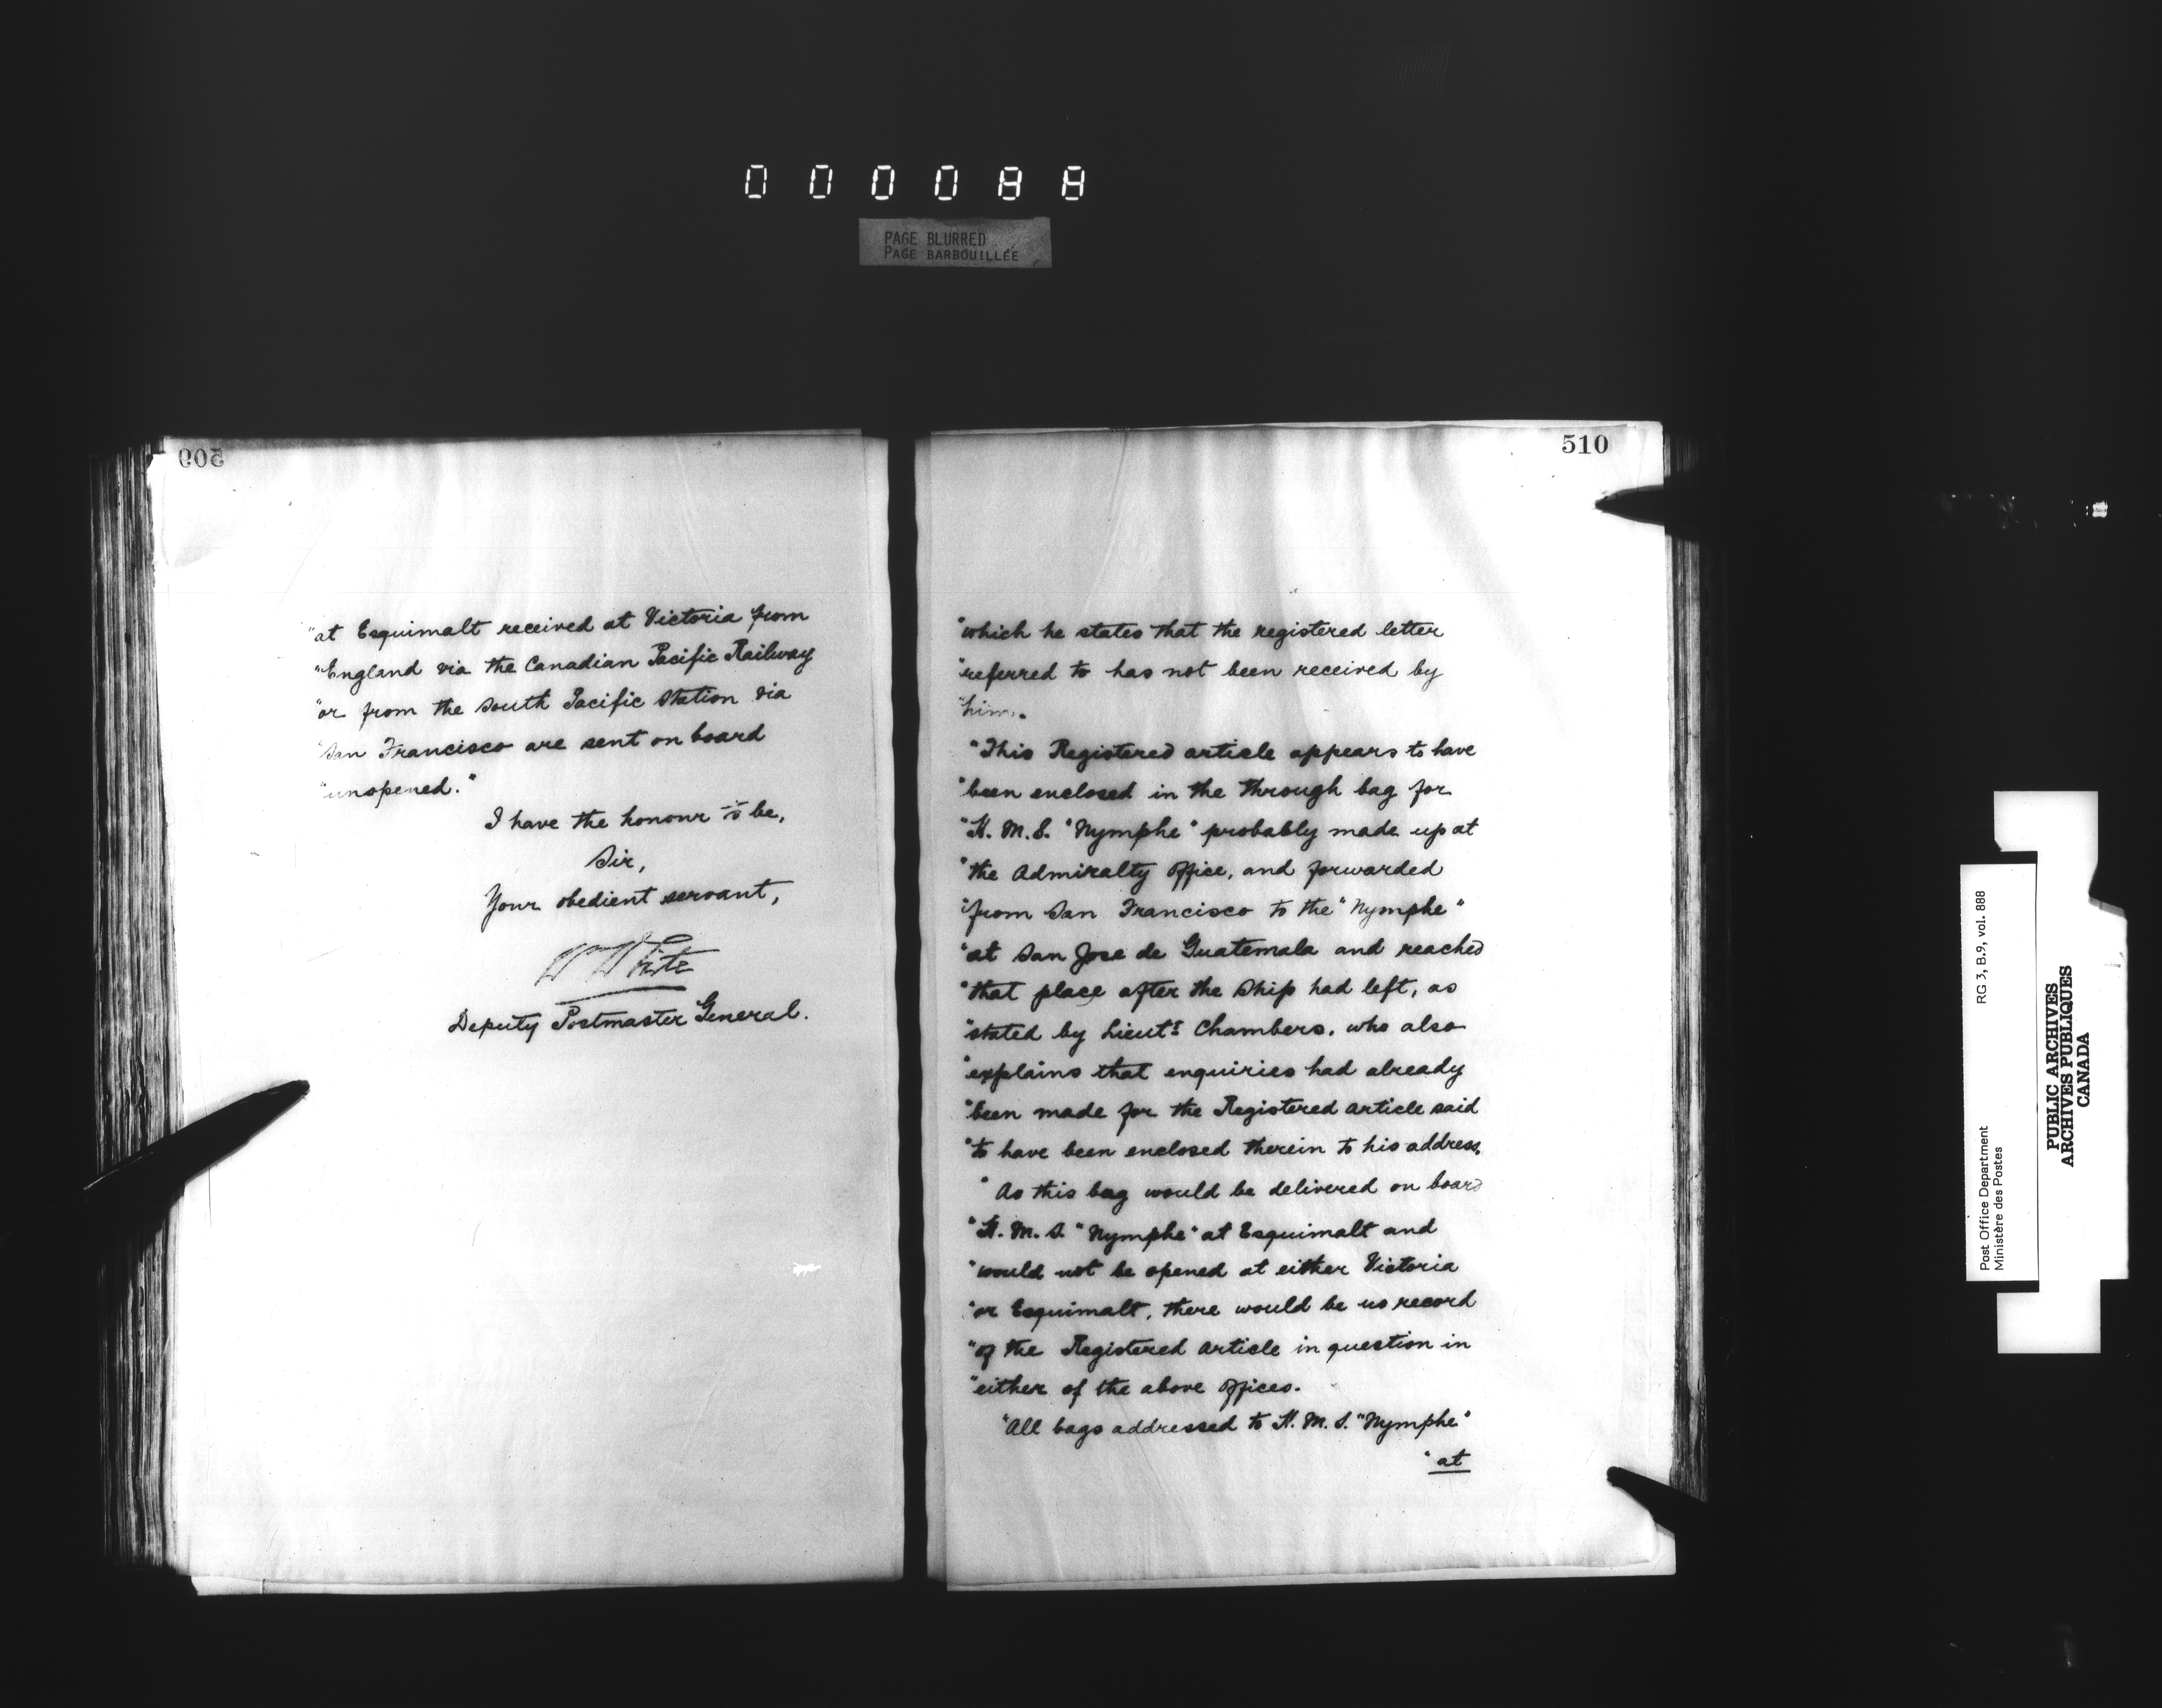 000088
PAGE BLURRED
PAGE BARBOUILLÉE
509
"at Esquimalt received at Victoria from
"England via the Canadian Pacific Railway
"or from the South Pacific Station via
"San Francisco are sent on board
"unopened."
I have the honour to be,
Sir,
Your obedient servant,
W White
Deputy Postmaster General.
510
"which he states that the registered letter
"referred to has not been received by
"him.
"This Registered article appears to have
"been enclosed in the through bag for
"H. M. S. "Nymphe" probably made up at
"the Admiralty Office, and forwarded
"from San Francisco to the "Nymphe"
"at San Jose de Guatemala and reached
"that place after the Ship had left, as
"stated by Lieut. Chambers, who also
"explains that enquiries had already
"been made for the Registered article said
"to have been enclosed therein to his address.
"As this bag would be delivered on board
"H. M. S. "Nymphe" at Esquimalt and
"would not be opened at either Victoria
"or Esquimalt, there would be no record
"of the Registered article in question in
"either of the above offices.
"All bags addressed to H. M. S. "Nymphe"
"at
Post Office Department RG 3, B.9, vol. 888
Ministère des Postes
PUBLIC ARCHIVES
ARCHIVES PUBLIQUES
CANADA